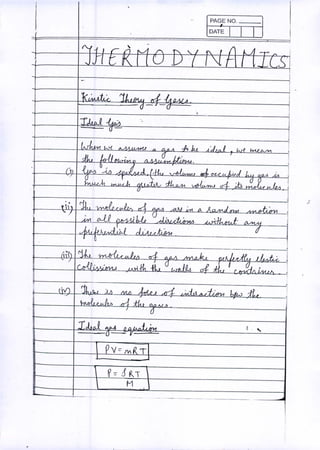 PAGE NO.
DATE
THERMODYNAMICS
Kinetic Theory of Gases
Ideal Gas
When we assume a gas to be ideal, we mean
the following assumptions.
(i) Gas is (the volume occupied by gas is
much much greater than volume of its molecules.
(ii) The molecules of gas are in a random motion
in all possible directions without any
preferential direction.
(iii) The molecules of gas make perfectly elastic
collisions with the walls of the container.
(iv) There is no force of interaction b/w the
molecules of the gases.
Ideal gas equation
PV = nRT
P = ρRT
M